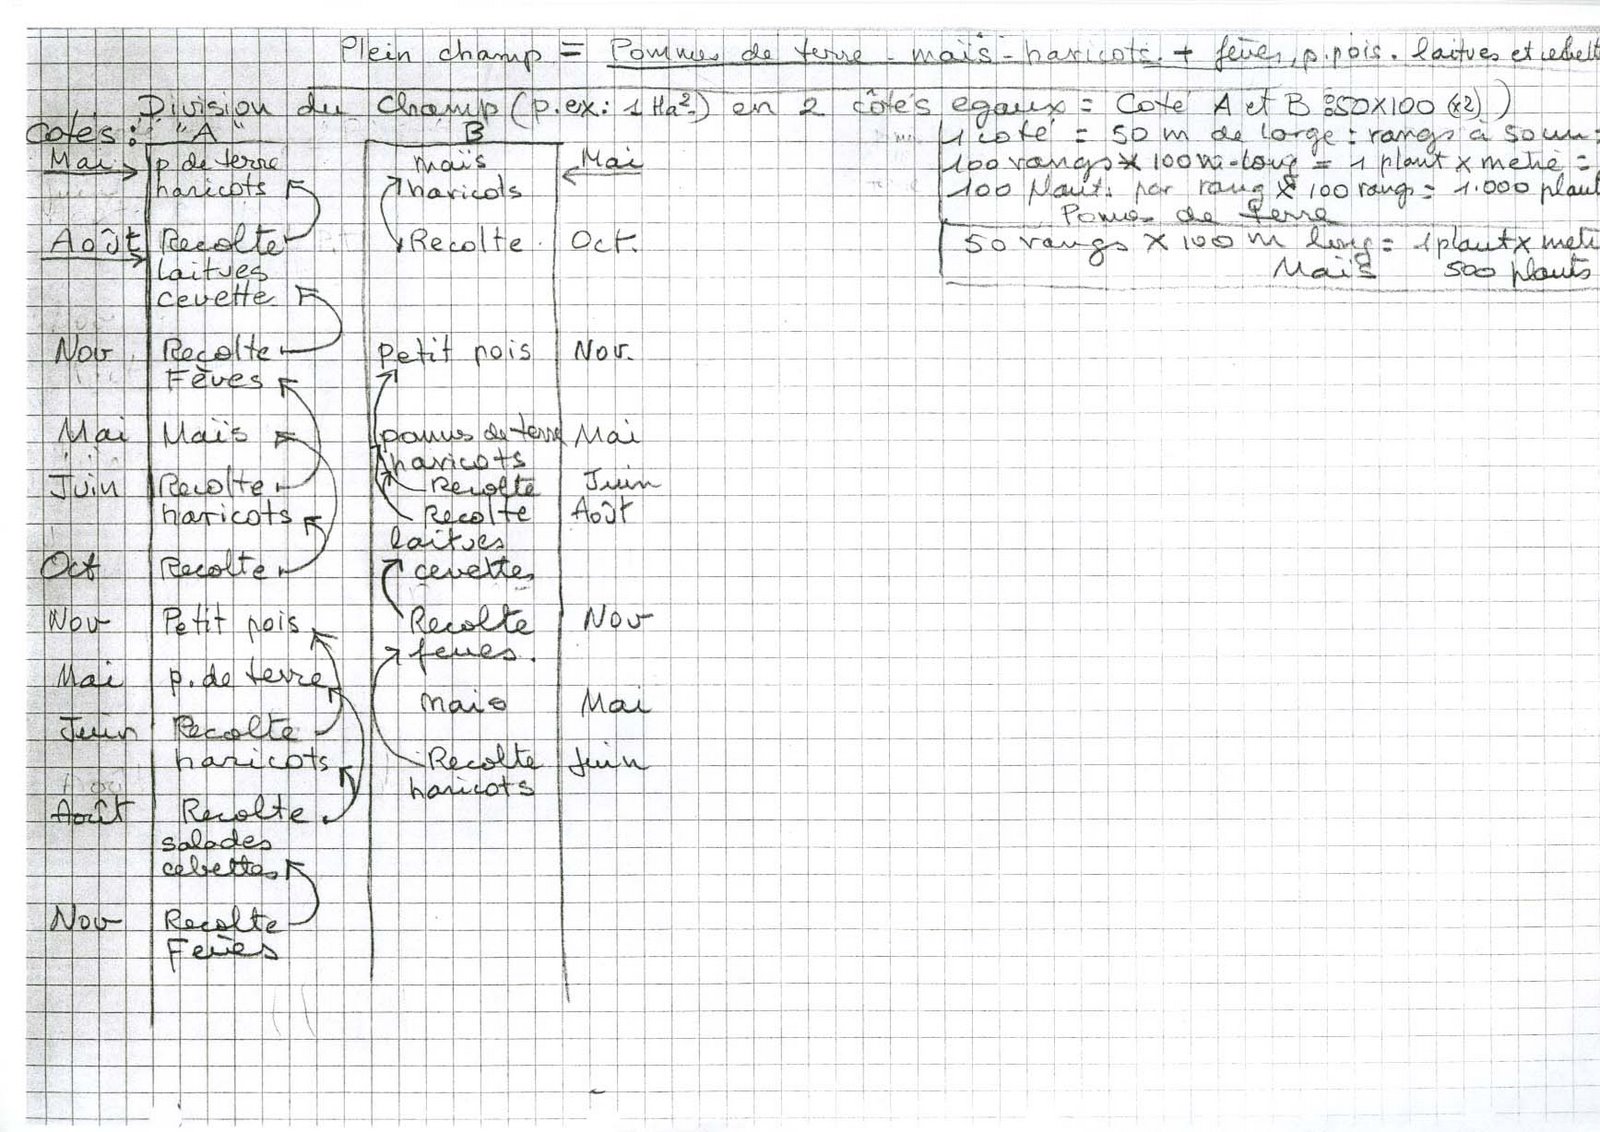 Plein champ = Pommes de terre - maïs - haricots + fèves, p. pois. laitues et cebett
Division du Champ (p.ex: 1 Ha²) en 2 côtés egaux = Coté A et B = 50x100 (x2))
Cotés: "A" B
1 coté = 50 m de large = rangs à 50 cm =
Mai p. de terre maïs Mai
100 rangs x 100 m long = 1 plant x metre =
haricots haricots
100 plants par rang x 100 rangs = 1.000 plant
Pomes de terre
Août Recolte Recolte. Oct.
50 rangs x 100 m long = 1 plant x met
laitues
Maïs 500 plants
cevette
Nov Recolte Petit pois Nov.
Fèves
Mai Maïs pomes de terre Mai
haricots
Juin Recolte Recolte Juin
haricots Recolte Août
laitues
Oct Recolte cevettes
Nov Petit pois Recolte Nov
feves.
Mai p. de terre
mais Mai
Juin Recolte
haricots Recolte Juin
haricots
Août Recolte
salades
cebettes
Nov Recolte
Feves